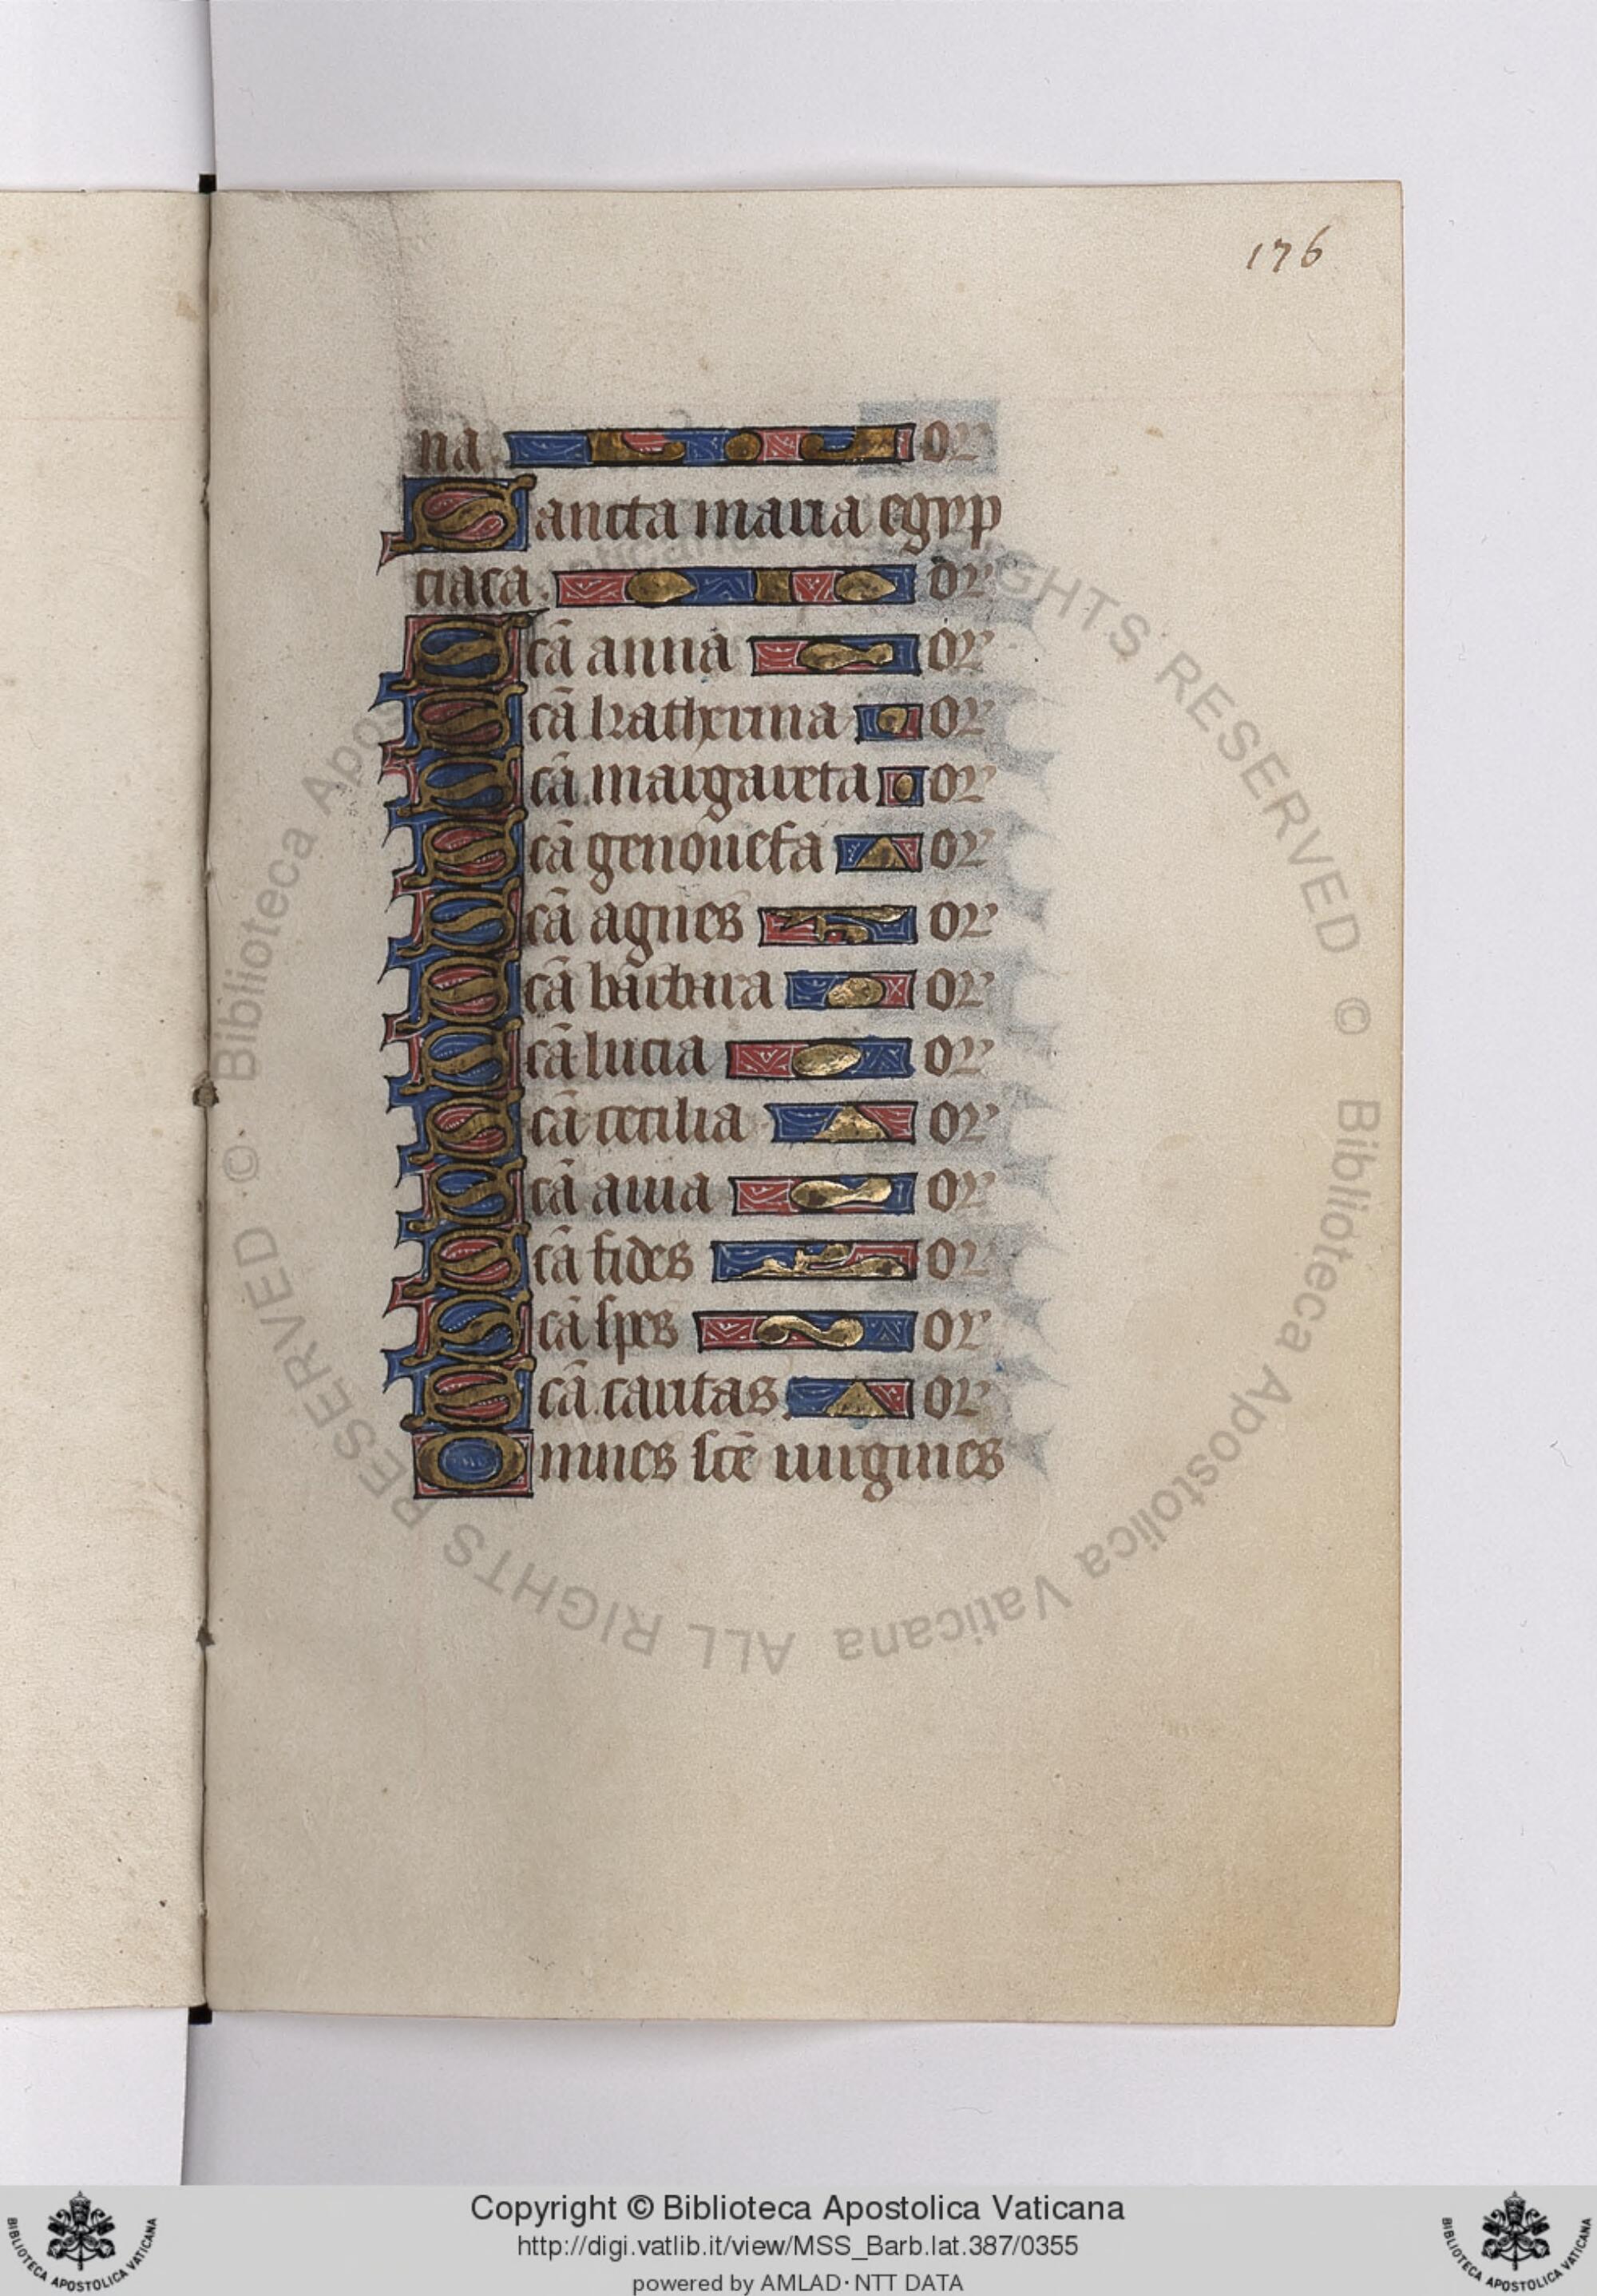 176
na or
Sancta maria egyp
ciaca. or
Scā anna or
Scā katherina or
Scā margareta or
Scā genouefa or
Scā agnes or
Scā barbara or
Scā lucia or
Scā cecilia or
Scā auia or
Scā fides or
Scā spes or
Scā caritas. or
Omnes scē uirgines
© Biblioteca Apostolica Vaticana ALL RIGHTS RESERVED © Biblioteca Apostolica Vaticana ALL RIGHTS RESERVED
Copyright © Biblioteca Apostolica Vaticana
http://digi.vatlib.it/view/MSS_Barb.lat.387/0355
powered by AMLAD·NTT DATA
BIBLIOTECA APOSTOLICA VATICANA
BIBLIOTECA APOSTOLICA VATICANA